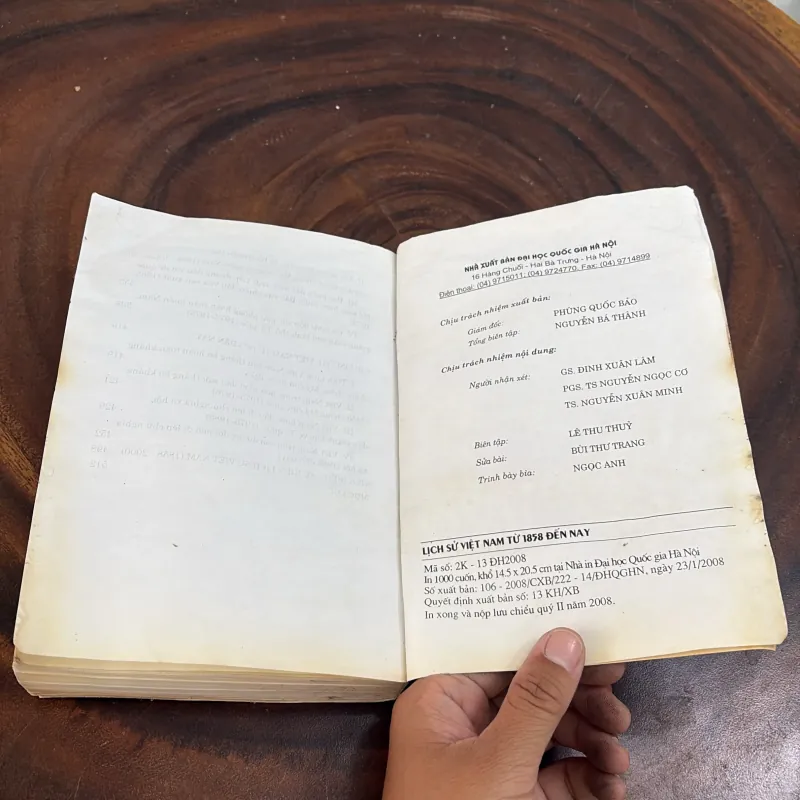 NHÀ XUẤT BẢN ĐẠI HỌC QUỐC GIA HÀ NỘI
16 Hàng Chuối - Hai Bà Trưng - Hà Nội
Điện thoại: (04) 9715011; (04) 9724770. Fax: (04) 9714899
Chịu trách nhiệm xuất bản:
Giám đốc PHÙNG QUỐC BẢO
Tổng biên tập NGUYỄN BÁ THÀNH
Chịu trách nhiệm nội dung:
Người nhận xét: GS. ĐINH XUÂN LÂM
PGS. TS NGUYỄN NGỌC CƠ
TS. NGUYỄN XUÂN MINH
Biên tập: LÊ THU THUỶ
Sửa bài: BÙI THƯ TRANG
Trình bày bìa: NGỌC ANH
LỊCH SỬ VIỆT NAM TỪ 1858 ĐẾN NAY
Mã số: 2K - 13 ĐH2008
In 1000 cuốn, khổ 14.5 x 20.5 cm tại Nhà in Đại học Quốc gia Hà Nội
Số xuất bản: 106 - 2008/CXB/222 - 14/ĐHQGHN, ngày 23/1/2008
Quyết định xuất bản số: 13 KH/XB
In xong và nộp lưu chiểu quý II năm 2008.